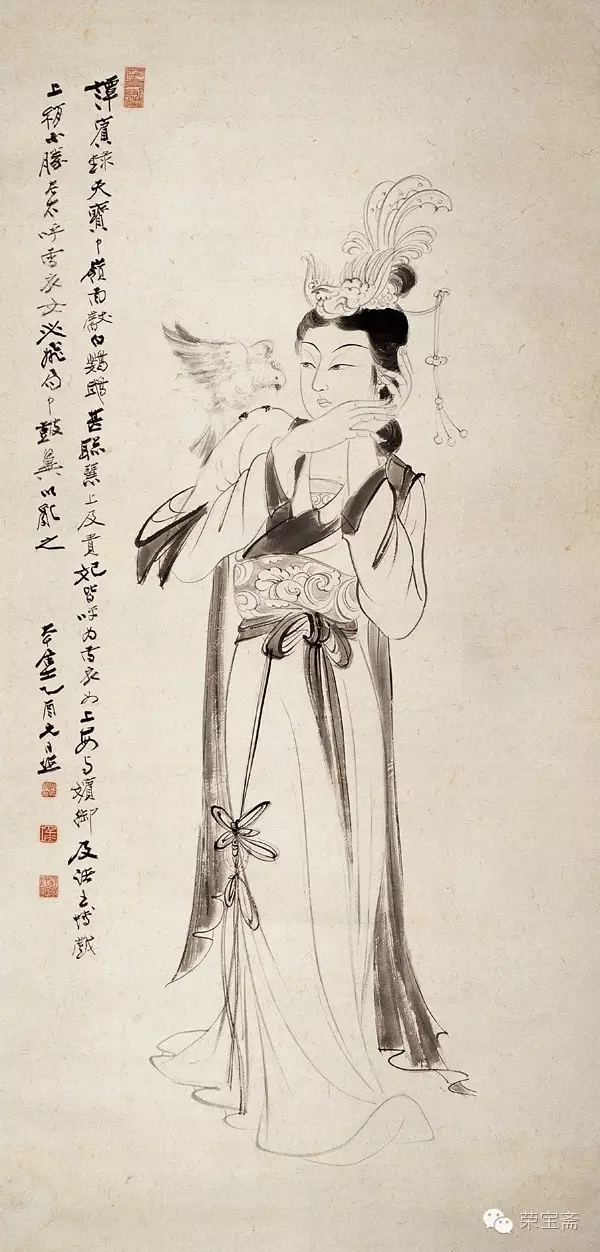 譚賓錄天寶中嶺南獻白鸚鵡甚聰慧上及貴妃皆呼为雪衣女上每与嬪御及諸王博戲
上稍不勝左右呼雪衣女必飛局中鼓翼以亂之
乙酉元日
荣宝斋